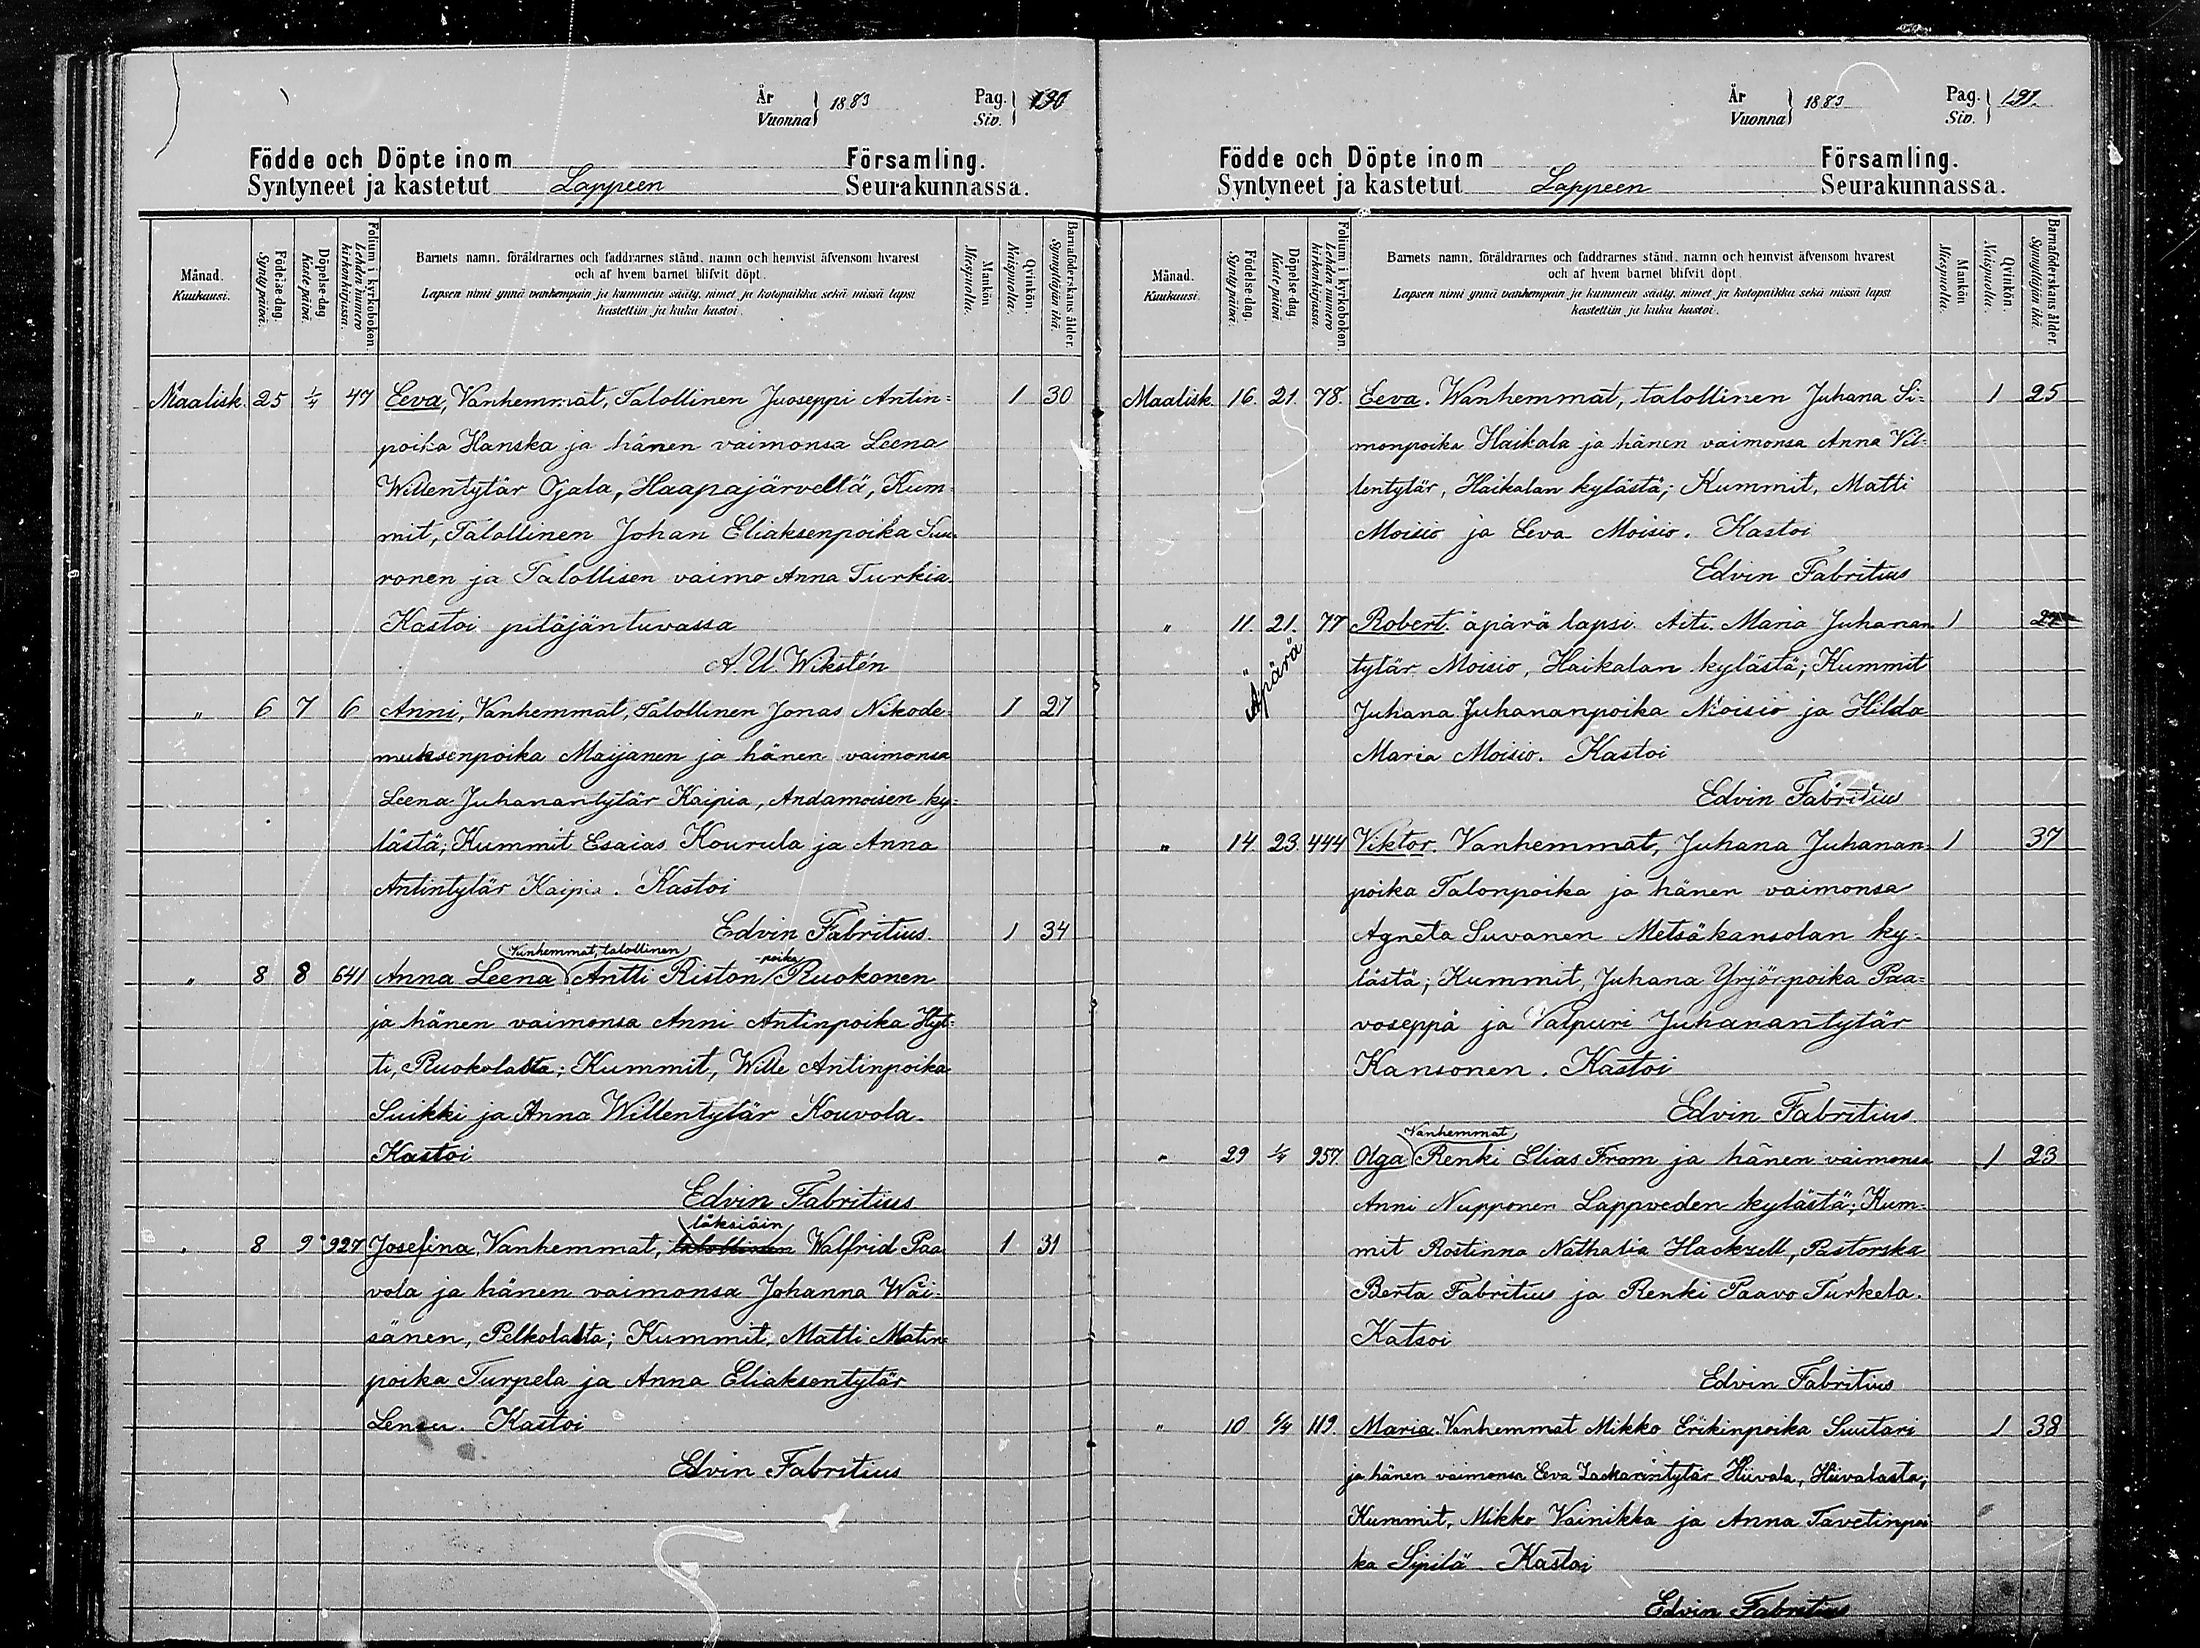 År
Vuonna } 1883 Pag.
Siv. } 190
Födde och Döpte inom Församling.
Syntyneet ja kastetut Lappeen Seurakunnassa.
Månad.
Kuukausi.
Födelse-dag.
Synty päivä.
Döpelse-dag.
Kaste päivä.
Folium i kyrkoboken.
Lehden numero
kirkonkirjassa.
Barnets namn, föräldrarnes och faddrarnes stånd, namn och hemvist äfvensom hvarest
och af hvem barnet blifvit döpt.
Lapsen nimi ynnä vanhempain ja kummein sääty, nimet ja kotopaikka sekä missä lapsi
kastettiin ja kuka kastoi.
Mankön
Miespuolta.
Qvinkön.
Naispuolta.
Barnaföderskans ålder.
Synnyttäjän ikä.
Maalisk. 25 1/4 47 Eeva, Vanhemmat, Talollinen Juoseppi Antin= 1 30
poika Hanska ja hänen vaimonsa Leena
Willentytär Ojala, Haapajärveltä, Kum-
mit, Talollinen Johan Eliaksenpoika Suu-
ronen ja Talollisen vaimo Anna Turkia.
Kastoi pitäjäntuvassa
A. U. Wikstén
" 6 7 6 Anni, Vanhemmat, Talollinen Jonas Nikode= 1 27
muksenpoika Maijanen ja hänen vaimonsa
Leena Juhanantytär Kaipia, Andamoisen ky=
lästä; Kummit Esaias Kourula ja Anna
Antintytär Kaipia. Kastoi
Edvin Fabritius. 1 34
Vanhemmat, talollinen poika
" 8 8 641 Anna Leena Antti Riston Ruokonen
ja hänen vaimonsa Anni Antinpoika Hyt=
ti, Ruokolasta; Kummit, Wille Antinpoika
Suikki ja Anna Willentytär Kouvola.
Kastoi
Edvin Fabritius
läksiäin
" 8 9 927 Josefina, Vanhemmat, talollinen Walfrid Paa 1 31
vola ja hänen vaimonsa Johanna Wäi=
sänen, Pelkolasta; Kummit, Matti Matin=
poika Turpela ja Anna Eliaksentytär
Lensu. Kastoi
Edvin Fabritius
År
Vuonna } 1883 Pag.
Siv. } 191.
Födde och Döpte inom Församling.
Syntyneet ja kastetut Lappeen Seurakunnassa.
Månad.
Kuukausi.
Födelse-dag.
Synty päivä.
Döpelse-dag.
Kaste päivä.
Folium i kyrkoboken.
Lehden numero
kirkonkirjassa.
Barnets namn, föräldrarnes och faddrarnes stånd, namn och hemvist äfvensom hvarest
och af hvem barnet blifvit döpt.
Lapsen nimi ynnä vanhempain ja kummein sääty, nimet ja kotopaikka sekä missä lapsi
kastettiin ja kuka kastoi.
Mankön
Miespuolta.
Qvinkön.
Naispuolta.
Barnaföderskans ålder.
Synnyttäjän ikä.
Maalisk. 16. 21. 78. Eeva. Wanhemmat, talollinen Juhana Si= 1 25
monpoika Haikala ja hänen vaimonsa Anna Vil=
lentytär, Haikalan kylästä; Kummit, Matti
Moisio ja Eeva Moisio. Kastoi
Edvin Fabritius
" 11. 21. 77 Robert. äpärä lapsi Äiti. Maria Juhanan 1
Äpärä
tytär Moisio, Haikalan kylästä; Kummit
Juhana Juhananpoika Moisio ja Hilda
Maria Moisio. Kastoi
Edvin Fabritius
" 14 23. 444 Viktor. Vanhemmat, Juhana Juhanan= 1 37
poika Talonpoika ja hänen vaimonsa
Agneta Suvanen Metsäkansolan ky=
lästä; Kummit, Juhana Yrjönpoika Paa=
voseppä ja Valpuri Juhanantytär
Kansonen. Kastoi
Edvin Fabritius.
Vanhemmat
" 29 1/4 957. Olga Renki Elias From ja hänen vaimonsa 1 23
Anni Nupponen Lappveden kylästä; Kum=
mit Rostinna Nathalia Hackzell, Pastorska
Berta Fabritius ja Renki Paavo Turkela.
Katsoi
Edvin Fabritius
" 10 6/4 119. Maria. Vanhemmat Mikko Erikinpoika Suutari 1 38
ja hänen vaimonsa Eeva Zackarintytär Hiivala, Hiivalasta;
Kummit, Mikko Vainikka ja Anna Tavetinpoi
ka Sipilä. Kastoi
Edvin Fabritius